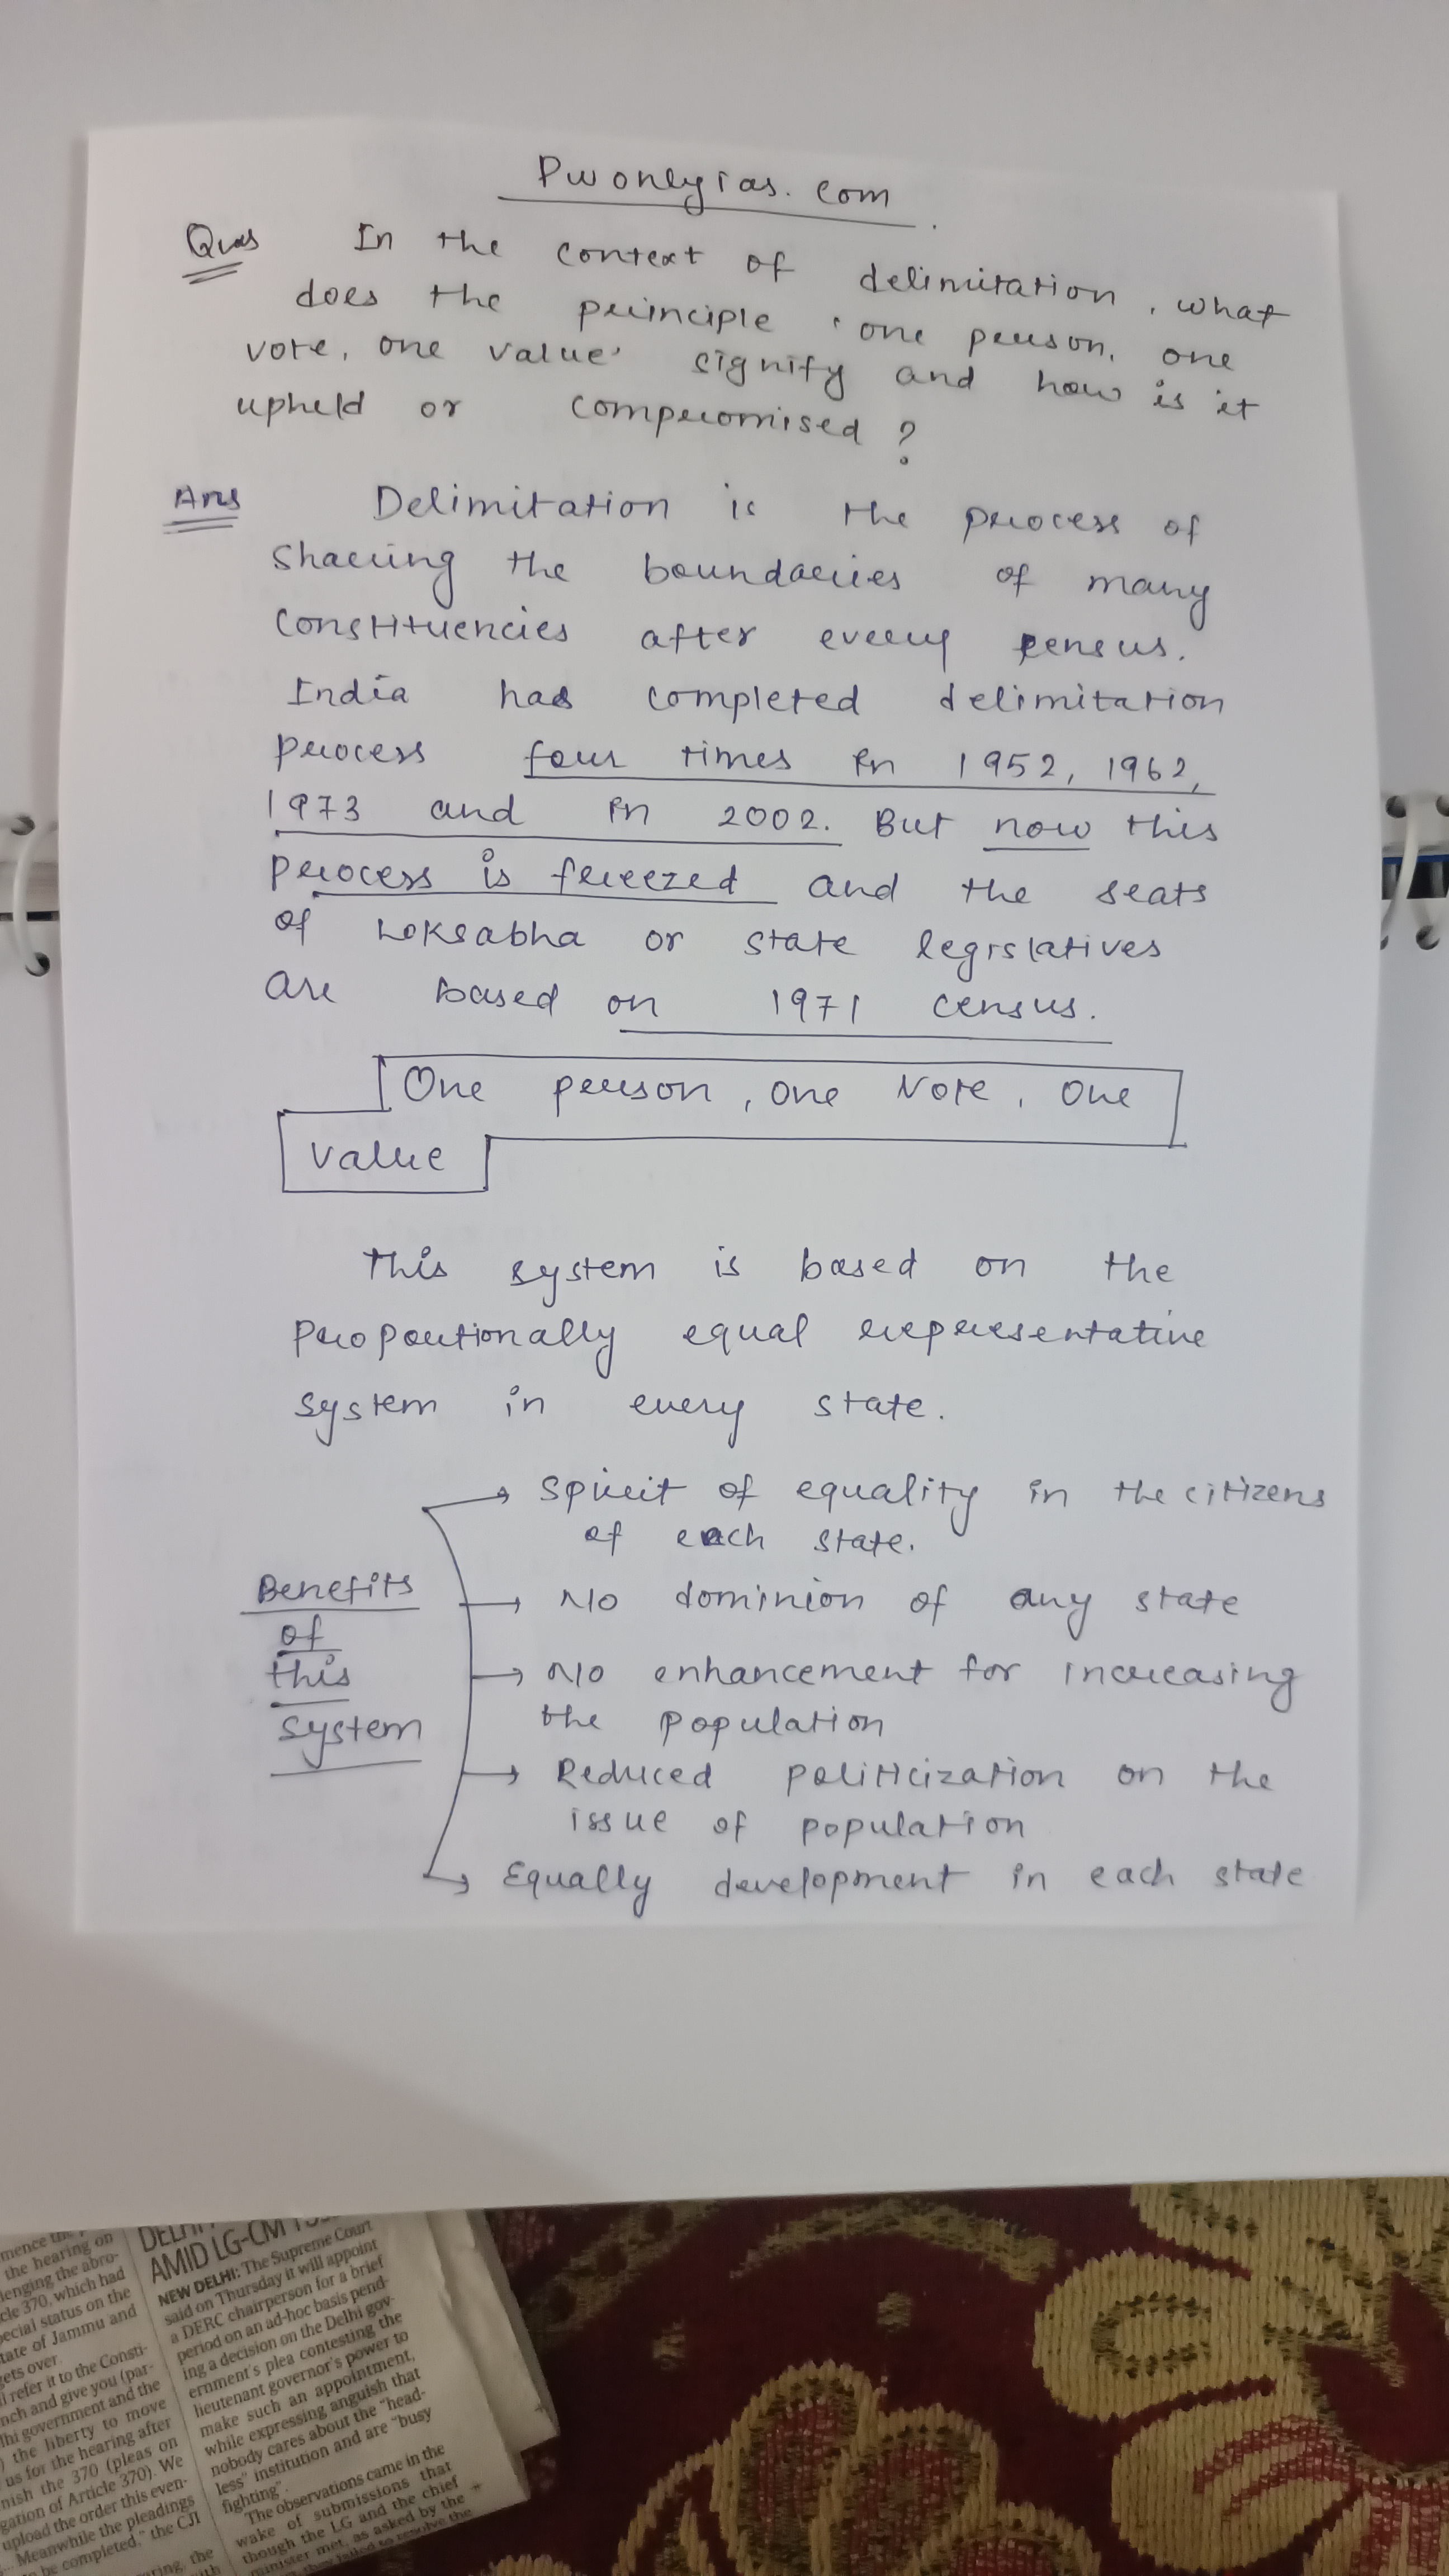 Pwonlyias.com
Ques In the context of delimitation, what
does the principle 'one person, one
vote, one value' signify and how is it
upheld or compromised?
Ans Delimitation is the process of
sharing the boundaries of many
constituencies after every census.
India has completed delimitation
process four times in 1952, 1962,
1973 and in 2002. But now this
process is freezed and the seats
of Loksabha or state legislatives
are based on 1971 census.
One person, one Vote, One
value
This system is based on the
proportionally equal representative
system in every state.
Benefits
of
this
system
→ Spirit of equality in the citizens
of each state.
→ No dominion of any state
→ No enhancement for increasing
the population
→ Reduced politicization on the
issue of population
→ Equally development in each state
mence the
the hearing on
lenging the abro-
cle 370, which had
pecial status on the
tate of Jammu and
gets over.
ll refer it to the Consti-
nch and give you (par-
lhi government and the
the liberty to move
us for the hearing after
nish the 370 (pleas on
gation of Article 370). We
upload the order this even-
Meanwhile the pleadings
be completed," the CJI
AMID LG-CM
NEW DELHI: The Supreme Court
said on Thursday it will appoint
a DERC chairperson for a brief
period on an ad-hoc basis pend-
ing a decision on the Delhi gov-
ernment's plea contesting the
lieutenant governor's power to
make such an appointment,
while expressing anguish that
nobody cares about the "head-
less" institution and are "busy
fighting".
The observations came in the
wake of submissions that
though the LG and the chief
minister met, as asked by the